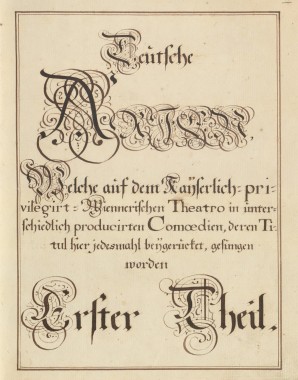 Teütsche
ARIEN,
Welche auf dem Kaÿserlich=pri-
vilegirt=Wiennerischen Theatro in unter-
schiedlich producirten Comœdien, deren Ti-
tul hier jedesmahl beÿgerücket, gesungen
worden
Erster Theil.